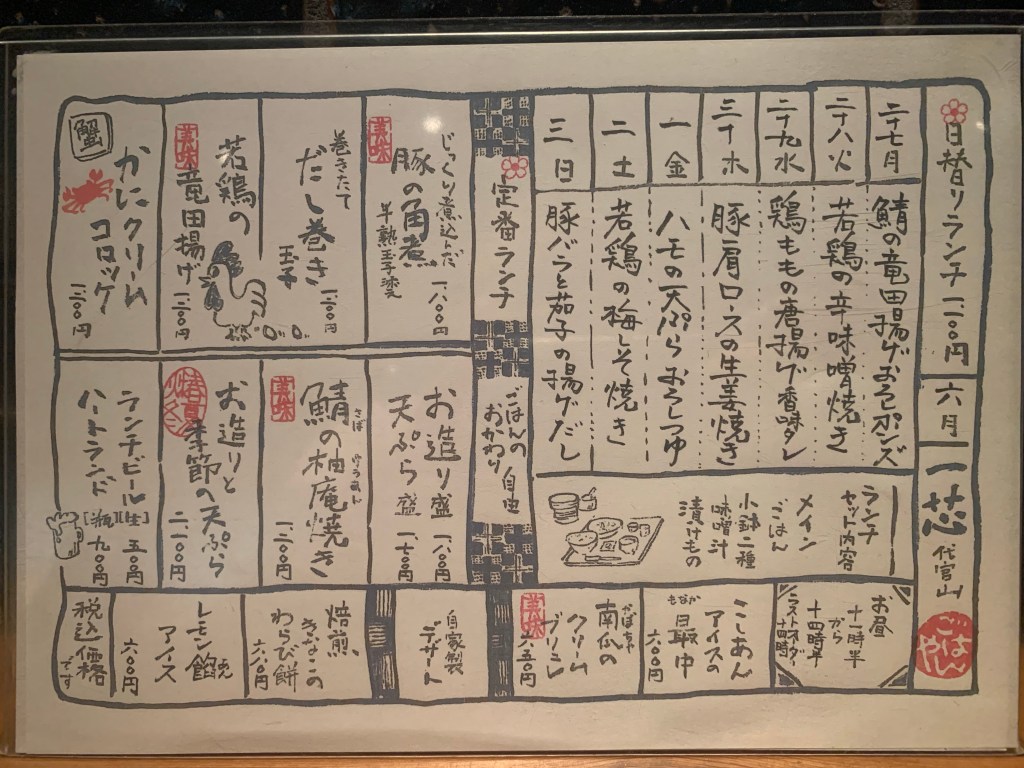 日替りランチ 一二〇〇円
六月
一芯
代官山
ごはんやし
二十七 月
鯖の竜田揚げおろしポンズ
二十八 火
若鶏の辛味噌焼き
二十九 水
鶏ももの唐揚げ香味ダレ
三十 木
豚肩ロースの生姜焼き
一 金
ハモの天ぷらおろしつゆ
二 土
若鶏の梅しそ焼き
三 日
豚バラと茄子の揚げだし
ランチ
セット内容
メイン
ごはん
小鉢二種
味噌汁
漬けもの
定番ランチ
ごはんの
おかわり
自由
じっくり煮込んだ
美味
豚の角煮
半熟玉子添え
一八〇〇円
巻きたて
だし巻き
玉子
一二〇〇円
若鶏の
美味
竜田揚げ
一二〇〇円
蟹
かにクリーム
コロッケ
お造り盛 一八〇〇円
天ぷら盛 一七〇〇円
美味
さば ゆうあん
鯖の柚庵焼き
一二〇〇円
お造りと
季節の天ぷら
二一〇〇円
ランチビール [生] 五〇〇円
ハートランド [瓶] 九〇〇円
お昼
十一時半
から
十四時半
ラストオーダー
十四時
こしあん
アイスの
もなか
最中
六〇〇円
かぼちゃ
南瓜の
クリーム
ブリュレ
美味
六五〇円
自家製
デザート
焙煎
きなこの
わらび餅
レモン餡
あん
アイス
六〇〇円
税込価格
です